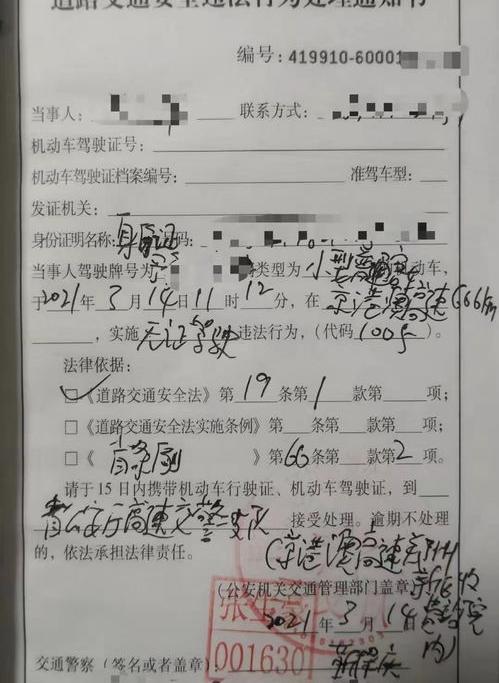 道路交通安全违法行为处理通知书
编号：419910-60001
当事人： 联系方式：
机动车驾驶证号：
机动车驾驶证档案编号： 准驾车型：
发证机关：
身份证明名称： 身份证 号码：
当事人驾驶牌号为 类型为 小型普通客 机动车，
于 2021 年 3 月 14 日 11 时 12 分，在 京港澳高速 666km
，实施 无证驾驶 违法行为，（代码 1005 ）。
法律依据：
□《道路交通安全法》第 19 条第 1 款第 项；
□《道路交通安全法实施条例》第 条第 款第 项；
□《 》第 66 条第 2 项。
请于 15 日内携带机动车行驶证、机动车驾驶证，到
省公安厅高速交警支队 接受处理。逾期不处理
的，依法承担法律责任。
（京港澳高速
（公安机关交通管理部门盖章）
2021 年 3 月 14
001630
交通警察（签名或者盖章）：